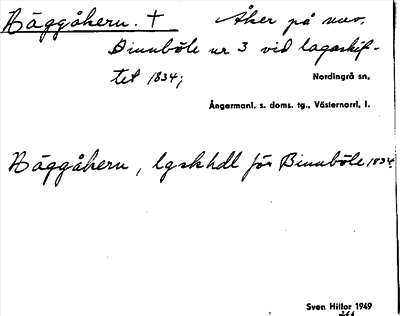 Häggåkern. † Åker på nuv.
Binnböle nr 3 vid lagaskif-
tet 1834;
Nordingrå sn,
Ångermanl. s. doms. tg., Västernorrl, l.
Häggåkern, lgskhdl för Binnböle 1834.
Sven Hillor 1949